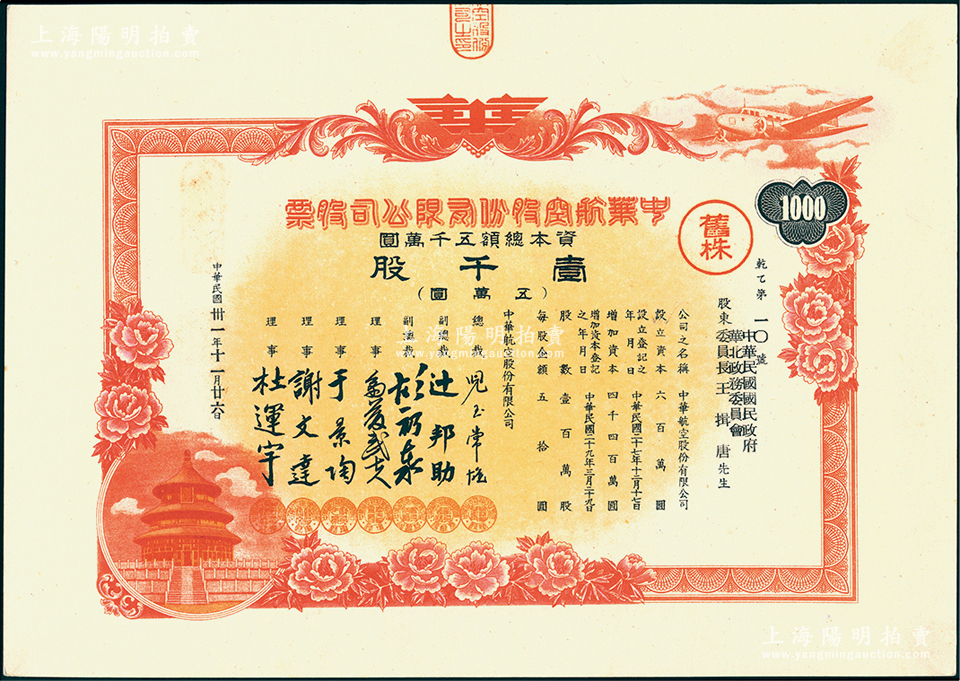 上海陽明拍賣
www.yangmingauction.com
華
中華航空股份有限公司股票
資本總額五千萬圓
壹千股
(五萬圓)
1000
舊株
乾乙第一〇號
中華民國國民政府
華北政務委員會
股東 委員長 王揖唐 先生
公司之名稱 中華航空股份有限公司
設立資本 六百萬圓
設立登記之年月日 中華民國二十七年十二月十七日
增加資本 四千四百萬圓
增加資本登記之年月日 中華民國二十九年三月二十九日
股數 壹百萬股
每股金額 五拾圓
中華航空股份有限公司
總裁 児玉常雄
副總裁 辻邦助
副總裁
理事
理事 于景陶
理事 謝文達
理事 杜運宇
中華民國卅一年十一月廿六日
上海陽明拍賣
www.yangmingauction.com
上海陽明拍賣
www.yangmingauction.com